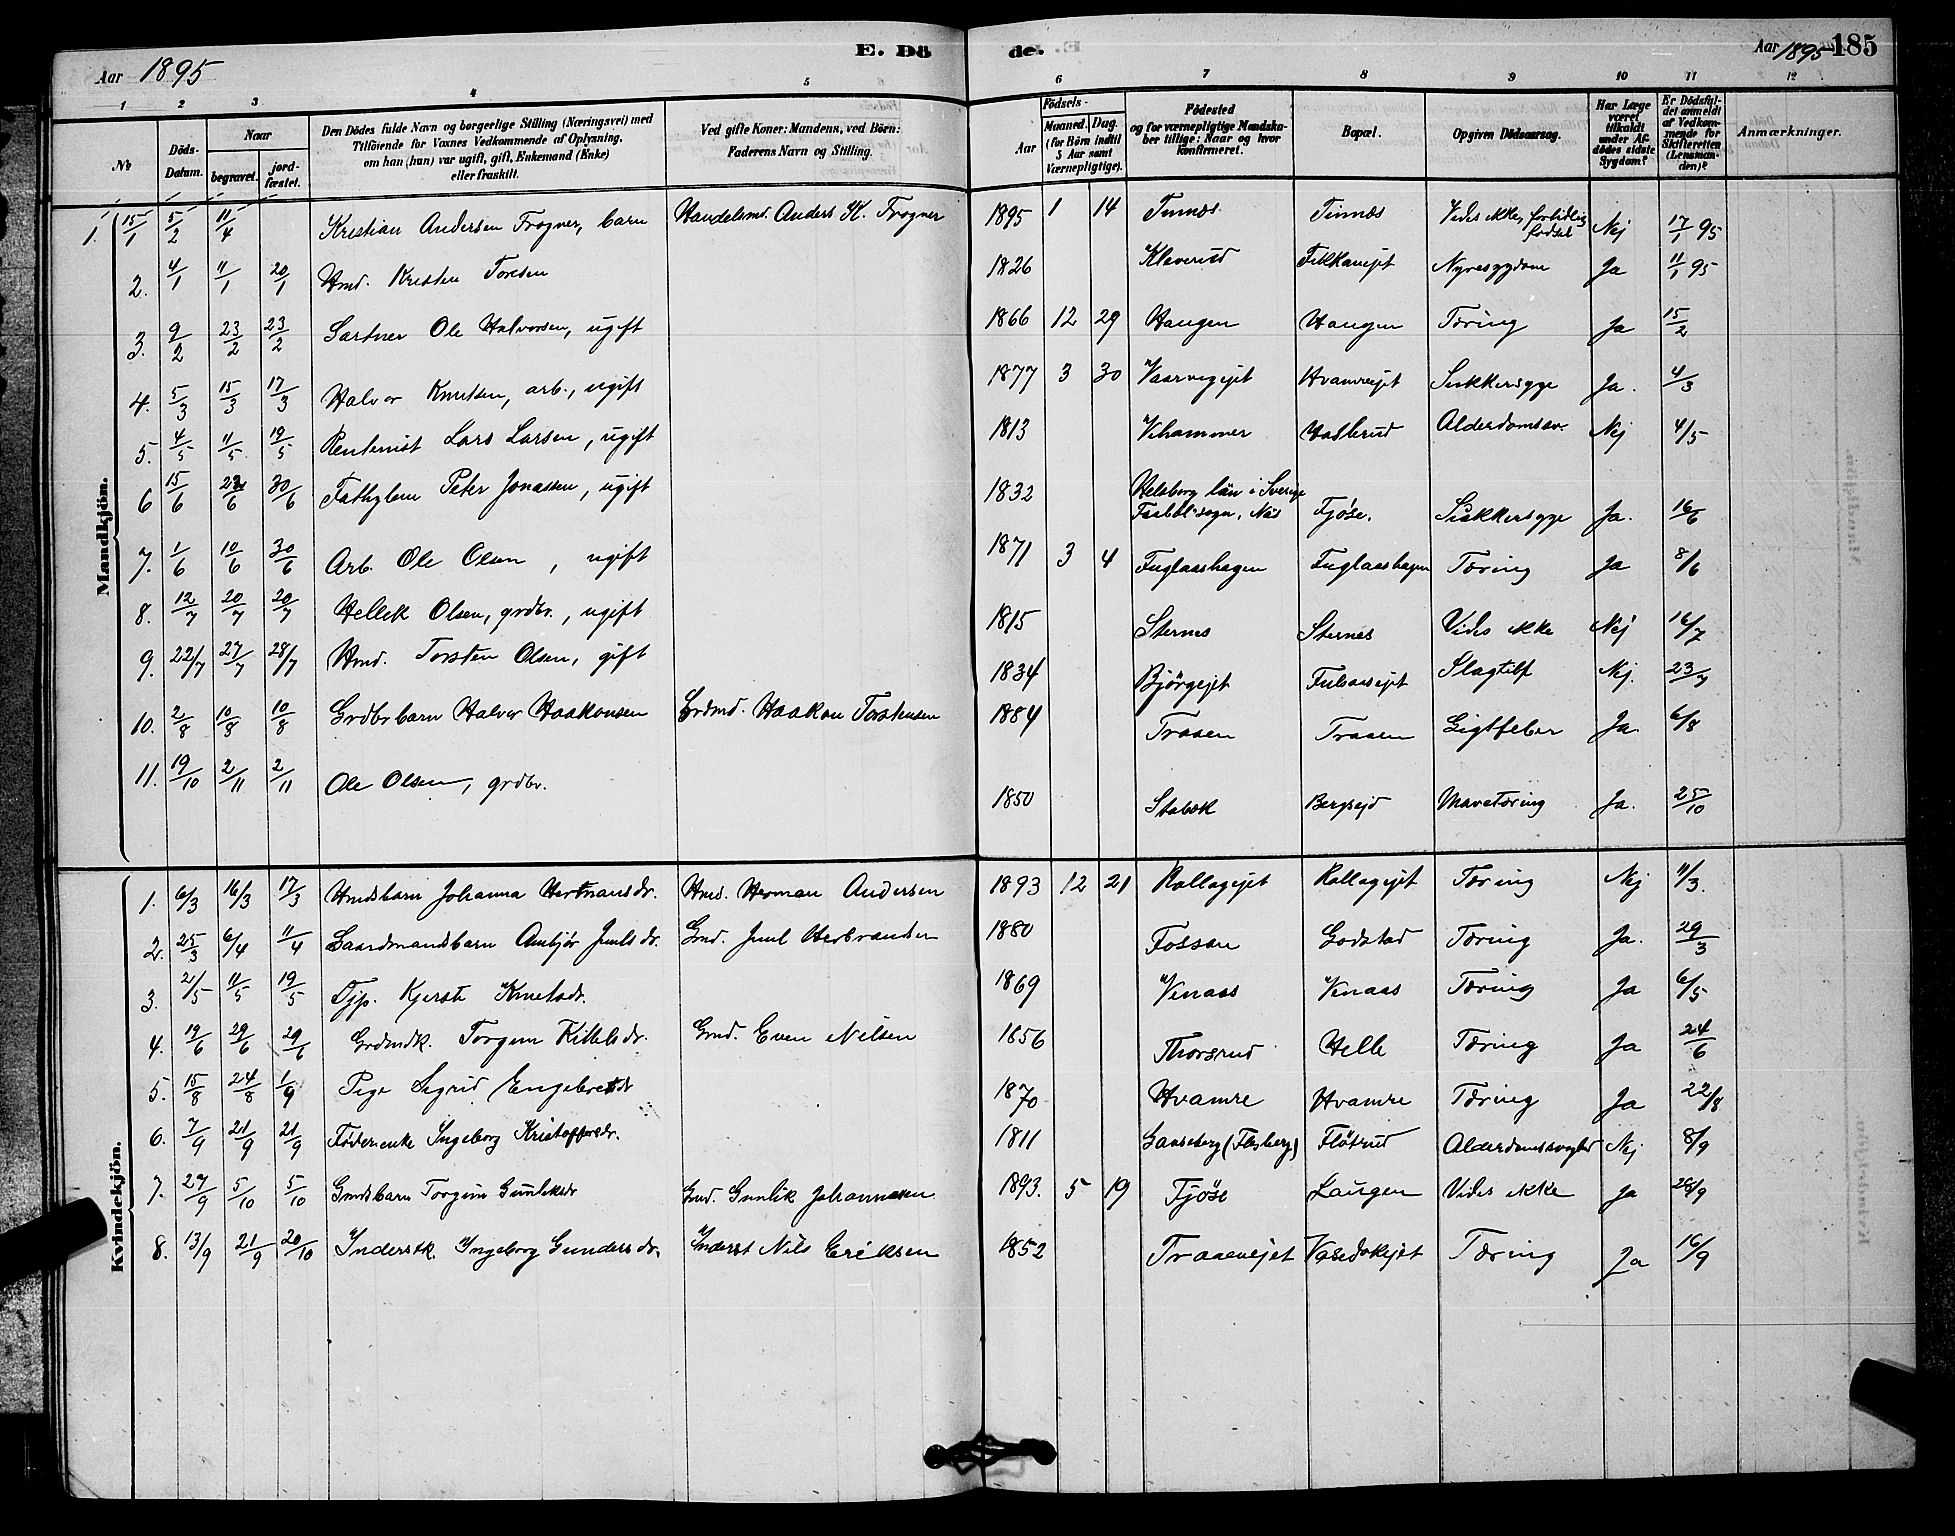 Aar 1895
E. Dö
de.
Aar 1895
185
1 2 3 4 5 6 7 8 9 10 11 12
No
Döds-Datum.
Naar
begravet.
jord-fæstet.
Den Dödes fulde Navn og borgerlige Stilling (Næringsvei) med
Tilföiende for Voxnes Vedkommende af Oplysning,
om han (hun) var ugift, gift, Enkemand (Enke)
eller fraskilt.
Ved gifte Koner: Mandens, ved Börn:
Faderens Navn og Stilling.
Födsels-
Aar
Maaned. Dag.
(for Börn indtil
5 Aar samt
Værnepligtige).
Födested
og for værnepligtige Mandska-
ber tillige: Naar og hvor
konfirmeret.
Bopæl.
Opgiven Dödsaarsag.
Har Læge
været
tilkaldt
under Af-
dödes sidste
Sygdom?
Er Dödsfal-
det anmeldt
af Vedkom-
mende for
Skifteretten
(Lensman-
den)?
Anmærkninger.
Mandkjön.
1. 15/1 5/2 11/4 Kristian Andersen Frogner, barn Handelsmd. Anders K. Frogner 1895 1 14 Tinnæs Tinnæs Vides ikke, fortidlig fødsel Nej 17/1 95
2. 4/1 11/1 20/1 Hmd. Kristen Toresen 1826 Klaverud Nyresygdom Ja 11/1 95
3. 9/2 23/2 23/2 Ole Halvorsen, ugift 1866 12 29 Haugen Haugen Tæring Ja 15/2
4. 5/3 15/3 17/3 Halvor Knutsen, arb., ugift 1877 3 30 Vaarvigejet Hvamreejet Sukkersyge Ja. 4/3
5. 4/5 11/5 19/5 Rentenist Lars Larsen, ugift 1813 Vihammer Haslerud Alderdomssv. Nej 4/5
6 15/6 23/6 30/6 Fattiglem Peter Jonassen, ugift 1832 Helsborg län i Sverige Næs Fjøse. Sukkersyge Ja. 16/6
7. 1/6 10/6 30/6 Arb. Ole Olsen, ugift 1871 3 4 Fuglaashagen Fuglaashagen Tæring Ja 8/6
8. 12/7 20/7 20/7 Hellek Olsen, grdbr., ugift 1815 Sternes Sternes Vides ikke Nej 16/7
9. 22/7 27/7 28/7 Hmd. Torsten Olsen, gift 1834 Bjørgejet Slagtilf Nej. 23/7
10. 2/8 10/8 10/8 Grdbrbarn Halvor Haakonsen Grdmd. Haakon Torstensen 1884 Traaen Traaen Gigtfeber Ja. 6/8
11. 19/10 2/11 2/11 Ole Olsen, grdbr. 1850 Stabæk Bergsejd Mavetæring Ja. 25/10
Kvindekjön.
1. 6/3 16/3 17/3 Hmdsbarn Johanna Hermansdr. Hmd. Herman Andersen 1893 12 21 Rollagejet Rollagejet Tæring Nej 11/3.
2. 25/3 6/4 11/4 Gaardmandsbarn Ambjør Juulsdr. Gmd. Juul Herbrandsen 1880 Fossan Godstad Tæring Ja. 29/3
3. 2/5 11/5 19/5 Tjp. Kjersti Knutsdr. 1869 Venaas Venaas Tæring Ja 6/5
4. 19/6 29/6 29/6 Grdmdk. Torgun Kittelsdr. Gmd. Even Nilsen 1856 Thorsrud Helle Tæring Ja 24/6
5. 15/8 24/8 1/9 Pige Sigrid Engebretsdr 1870 Hvamre Hvamre Tæring Ja 22/8
6. 7/9 21/9 21/9 Føderenke Ingeborg Kristoffersdr. 1811 (Flesberg) Fløtrud Alderdomssvaghed Nej 8/9
7. 27/9 5/10 5/10 Gmdsbarn Torgun Gunleksdr Gmd. Gunlik Johannesen 1893. 5 19 Fjøse Laugen Vides ikke Ja 28/9
8. 13/9 21/9 20/10 Inderstk. Ingeborg Gundersdr. Inderst Nils Eriksen 1852 Traaenejet Tæring Ja 16/9